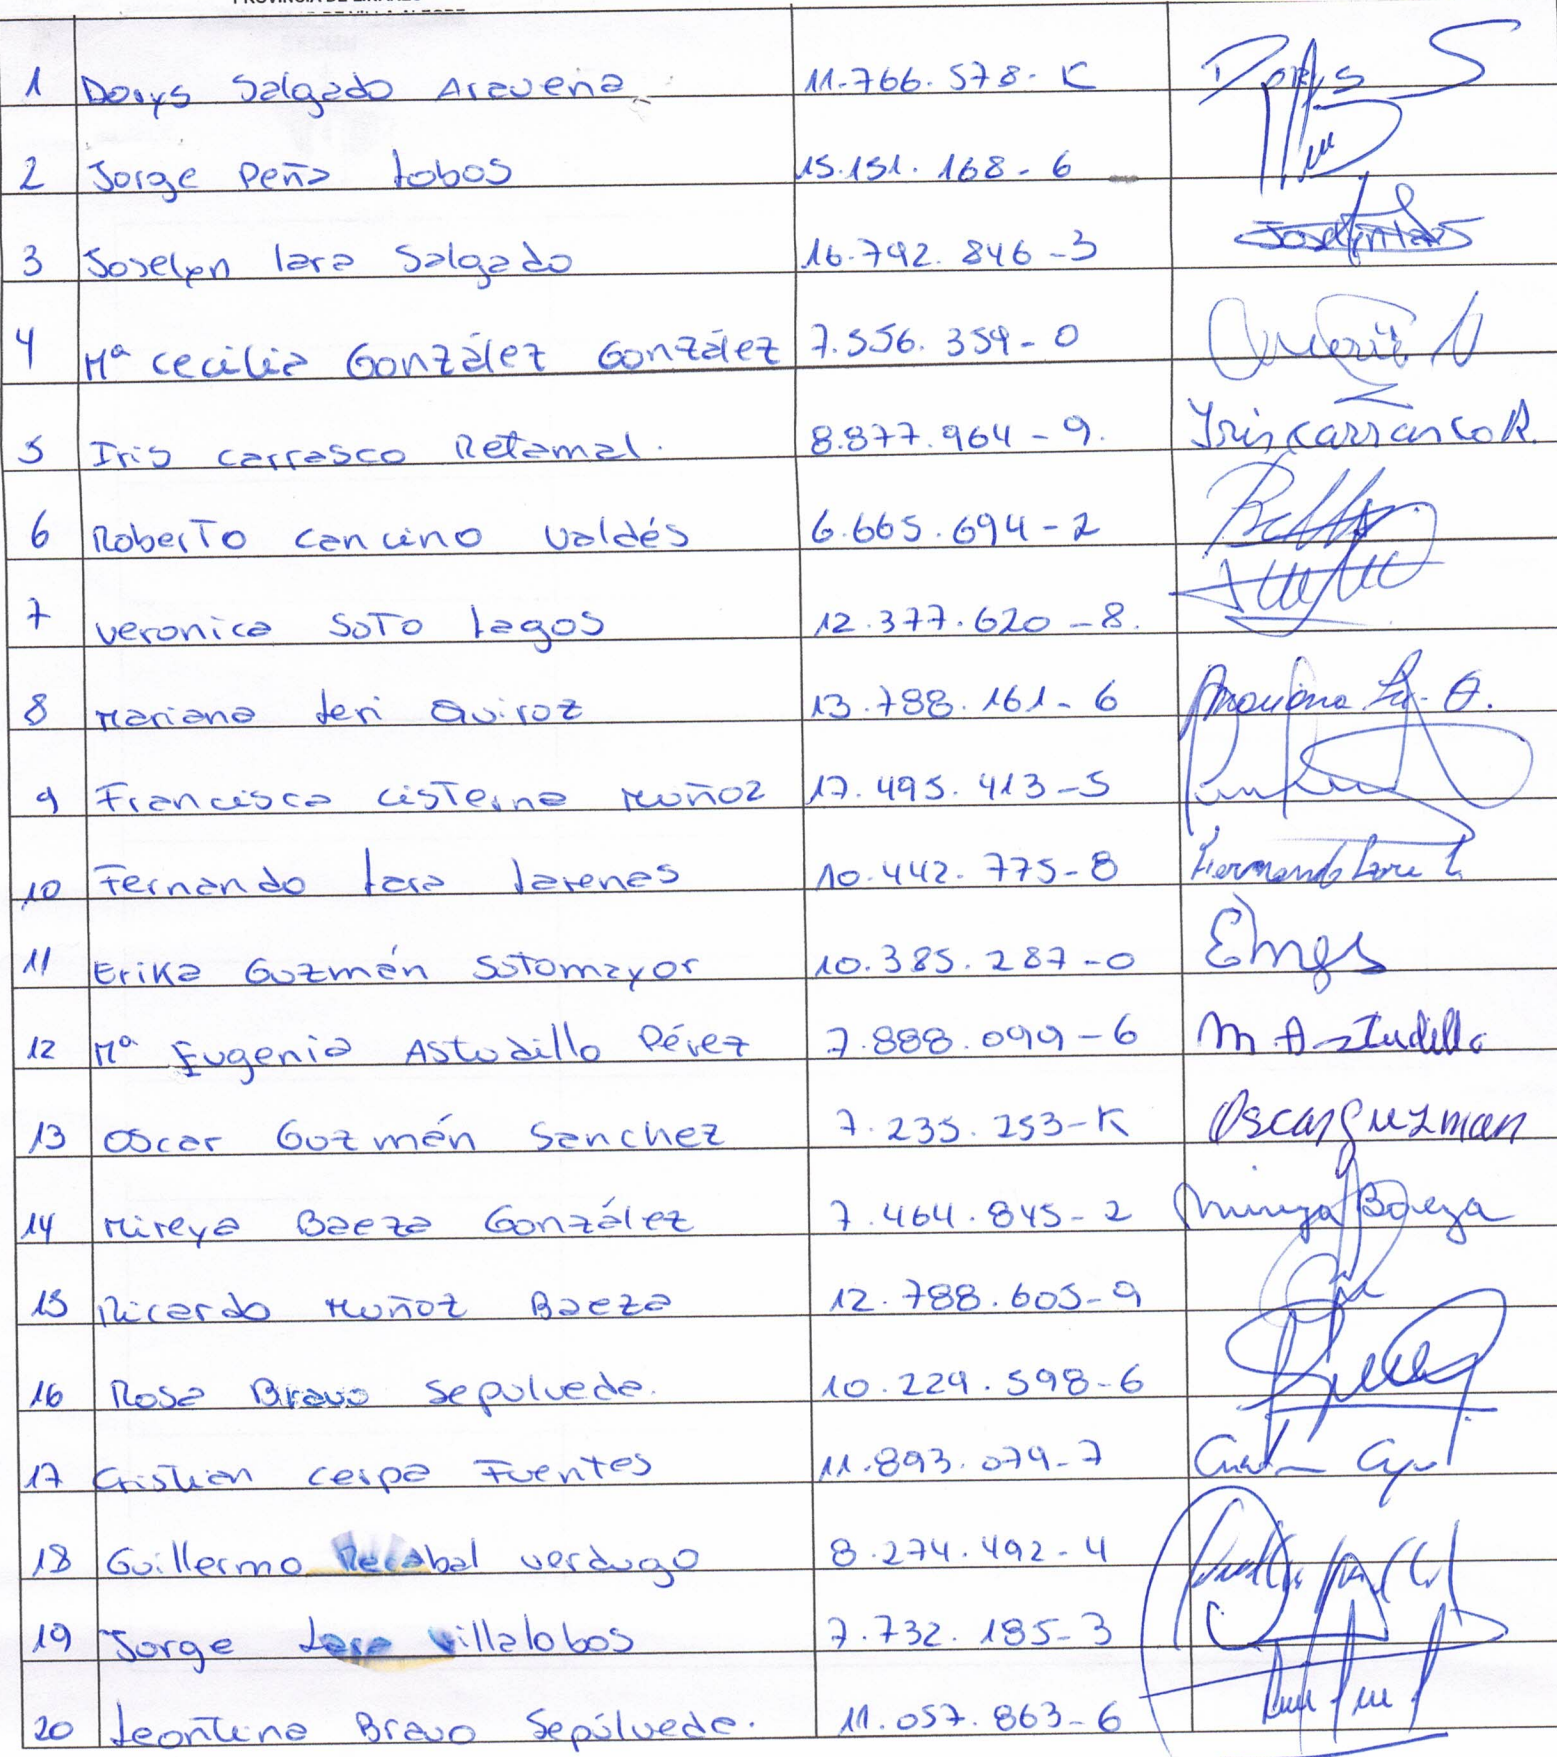 1 Dorys Salgado Aravena 11.766.578-K Dorys S
2 Jorge Peña Lobos 15.151.168-6
3 Joselyn Lara Salgado 16.792.846-3
4 Mª Cecilia González González 7.556.359-0
5 Iris Carrasco Retamal. 8.877.964-9. Iris Carrasco R.
6 Roberto Cancino Valdés 6.665.694-2
7 Veronica Soto Lagos 12.377.620-8.
8 Mariana Leri Quiroz 13.788.161-6
9 Francisca Cisterna Muñoz 17.495.413-5
10 Fernando Lara Larenas 10.442.775-8 Fernando Lara L.
11 Erika Guzmán Sotomayor 10.385.287-0
12 Mª Eugenia Astudillo Pérez 7.888.099-6 M Astudillo
13 Oscar Guzmán Sanchez 7.235.253-K Oscar Guzman
14 Mireya Baeza González 7.464.845-2 Mireya Baeza
15 Ricardo Muñoz Baeza 12.788.605-9
16 Rosa Bravo Sepulveda. 10.229.598-6
17 Cristian Cerpa Fuentes 11.893.079-7
18 Guillermo Recabal Verdugo 8.274.492-4
19 Jorge Lara Villalobos 7.732.185-3
20 Leontina Bravo Sepúlveda. 11.057.863-6